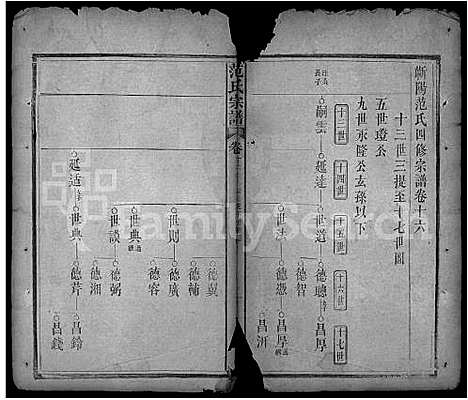 蘄陽范氏四修宗譜卷十六
十三世三提至十七世圖
五世璒公
九世永隆公玄孫以下
十三世
十四世
十五世
十六世
十七世
長子
嗣雲
延達
世道
德聰
昌厚
德智
世法
德憑
昌厚
昌汧
范氏宗譜
卷十
德翼
德輔
世則
德廣
德容
世典
世談
德弼
德湘
延适
世典
德芹
昌鈴
昌錢
FamilySearch